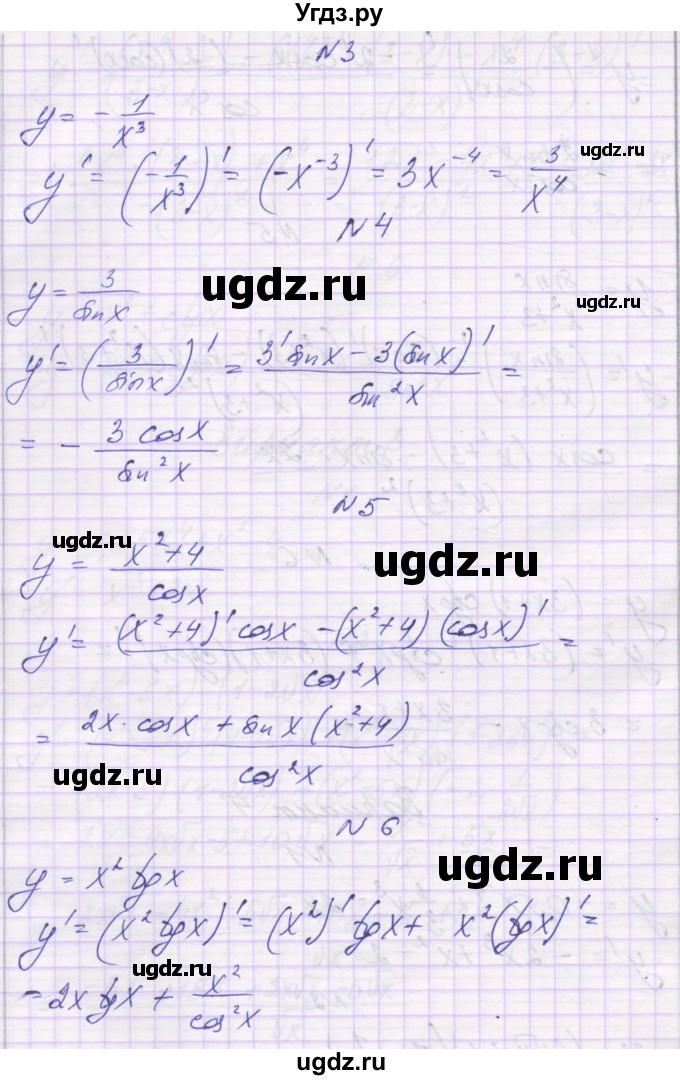 Угдз.ру
N3
y = - 1/x³
y' = (- 1/x³)' = (-x⁻³)' = 3x⁻⁴ = 3/x⁴
ugdz.ru
N4
ugdz.ru
y = 3/sin x
y' = (3/sin x)' = (3' sin x - 3(sin x)')/sin² x =
= - 3 cos x/sin² x
N5
ugdz.ru
ugdz.ru
y = (x² + 4)/cos x
y' = ((x² + 4)' cos x - (x² + 4)(cos x)')/cos² x =
= (2x · cos x + sin x (x² + 4))/cos² x
ugdz.ru
N6
ugdz.ru
y = x² tg x
y' = (x² tg x)' = (x²)' tg x + x² (tg x)' =
ugdz.ru
= 2x tg x + x²/cos² x
ugdz.ru